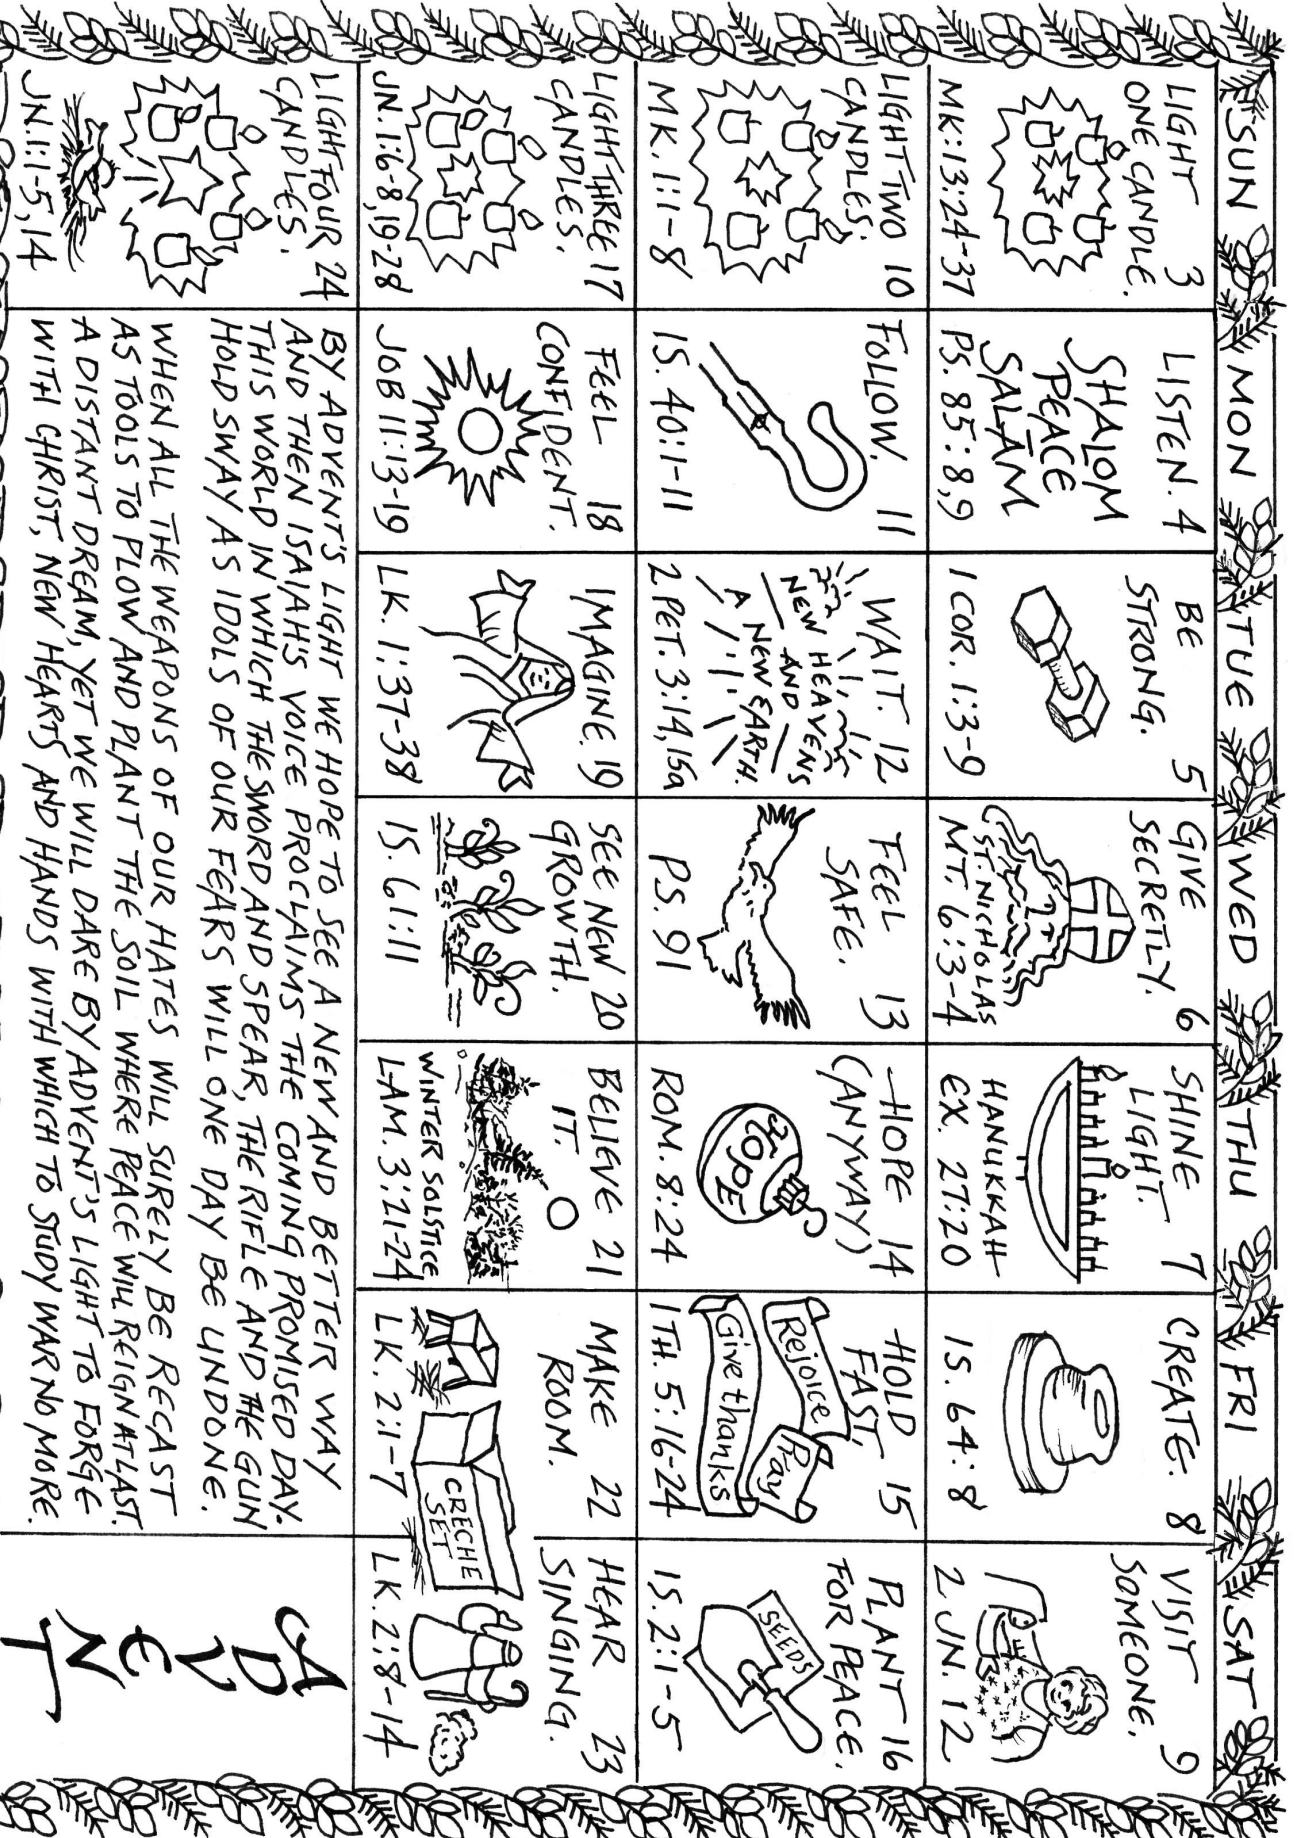 SUN MON TUE WED THU FRI SAT
LIGHT 3
ONE CANDLE.
MK:13:24-37
LISTEN. 4
SHALOM
PEACE
SALAM
PS. 85:8,9
BE 5
STRONG.
1 COR. 1:3-9
GIVE 6
SECRETLY.
ST. NICHOLAS
MT. 6:3-4
SHINE 7
LIGHT.
HANUKKAH
EX. 27:20
CREATE. 8
IS. 64:8
VISIT 9
SOMEONE.
2 JN. 12
LIGHT TWO 10
CANDLES.
MK. 1:1-8
FOLLOW. 11
IS. 40:1-11
WAIT. 12
NEW HEAVENS
AND
A NEW EARTH.
2 PET. 3:14,15a
FEEL 13
SAFE.
PS. 91
HOPE 14
(ANYWAY)
HOPE
ROM. 8:24
HOLD 15
FAST,
Rejoice
Pray
Give thanks
1 TH. 5:16-24
PLANT 16
FOR PEACE.
SEEDS
IS. 2:1-5
LIGHT THREE 17
CANDLES.
JN. 1:6-8,19-28
FEEL 18
CONFIDENT.
JOB 11:13-19
IMAGINE. 19
LK. 1:37-38
SEE NEW 20
GROWTH.
IS. 61:11
BELIEVE 21
IT.
WINTER SOLSTICE
LAM. 3:21-24
MAKE 22
ROOM.
CRECHE
SET
LK. 2:1-7
HEAR 23
SINGING.
LK. 2:8-14
LIGHT FOUR 24
CANDLES.
JN. 1:1-5,14
BY ADVENT'S LIGHT WE HOPE TO SEE A NEW AND BETTER WAY
AND THEN ISAIAH'S VOICE PROCLAIMS THE COMING PROMISED DAY.
THIS WORLD IN WHICH THE SWORD AND SPEAR, THE RIFLE AND THE GUN
HOLD SWAY AS IDOLS OF OUR FEARS WILL ONE DAY BE UNDONE.
WHEN ALL THE WEAPONS OF OUR HATES WILL SURELY BE RECAST
AS TOOLS TO PLOW AND PLANT THE SOIL WHERE PEACE WILL REIGN AT LAST.
A DISTANT DREAM, YET WE WILL DARE BY ADVENT'S LIGHT TO FORGE
WITH CHRIST, NEW HEARTS AND HANDS WITH WHICH TO STUDY WAR NO MORE.
ADVENT